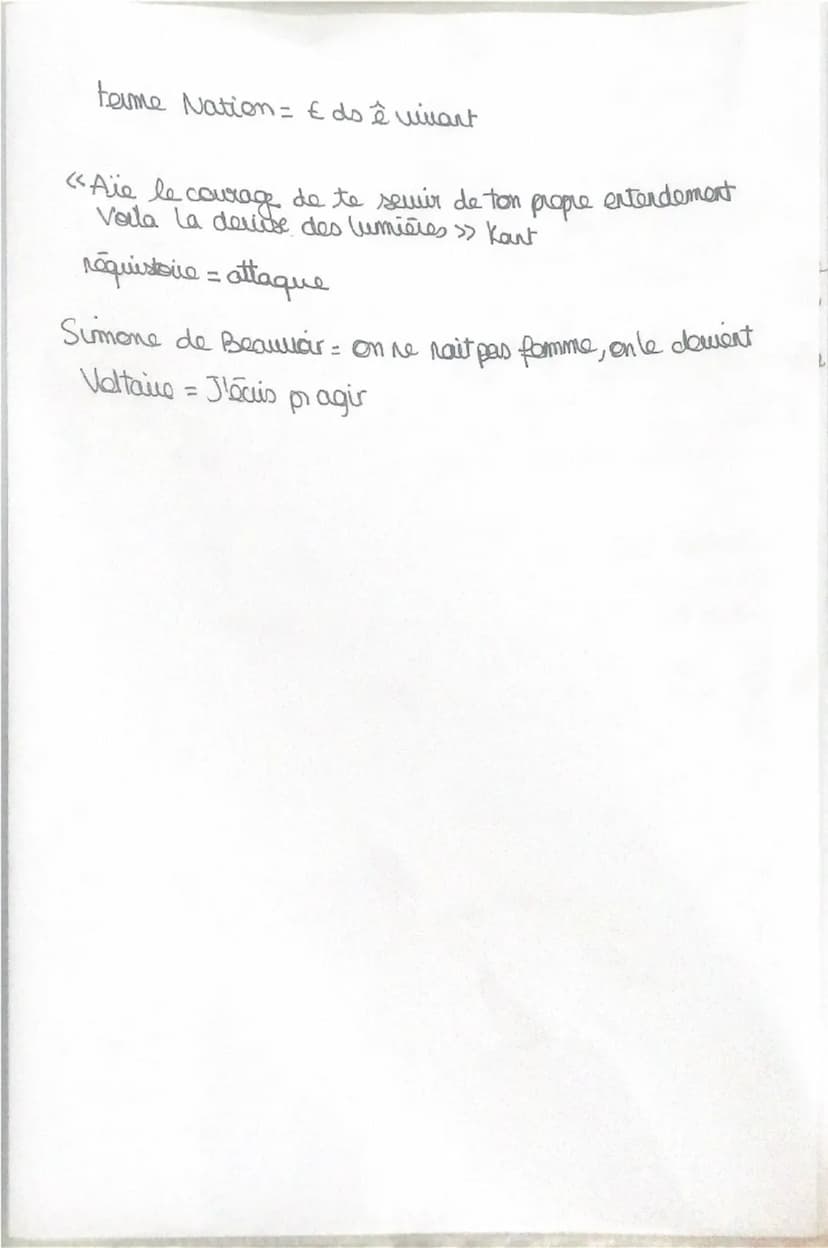 terme Nation = € ds ê vivant
«Aie le courage de te servir de ton propre entendement
Voila la devise des lumières » Kant
réquisitoire = attaque
Simone de Beauvoir = on ne nait pas femme, on le devient
Voltaire = J'écris pr agir